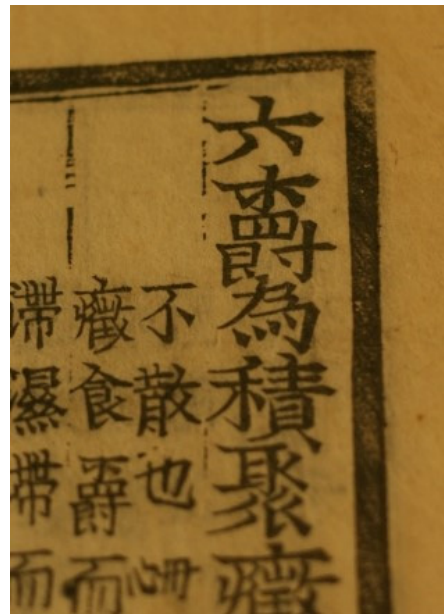 六鬱為積聚癥
不散也
癥食鬱而
滯濕滯而